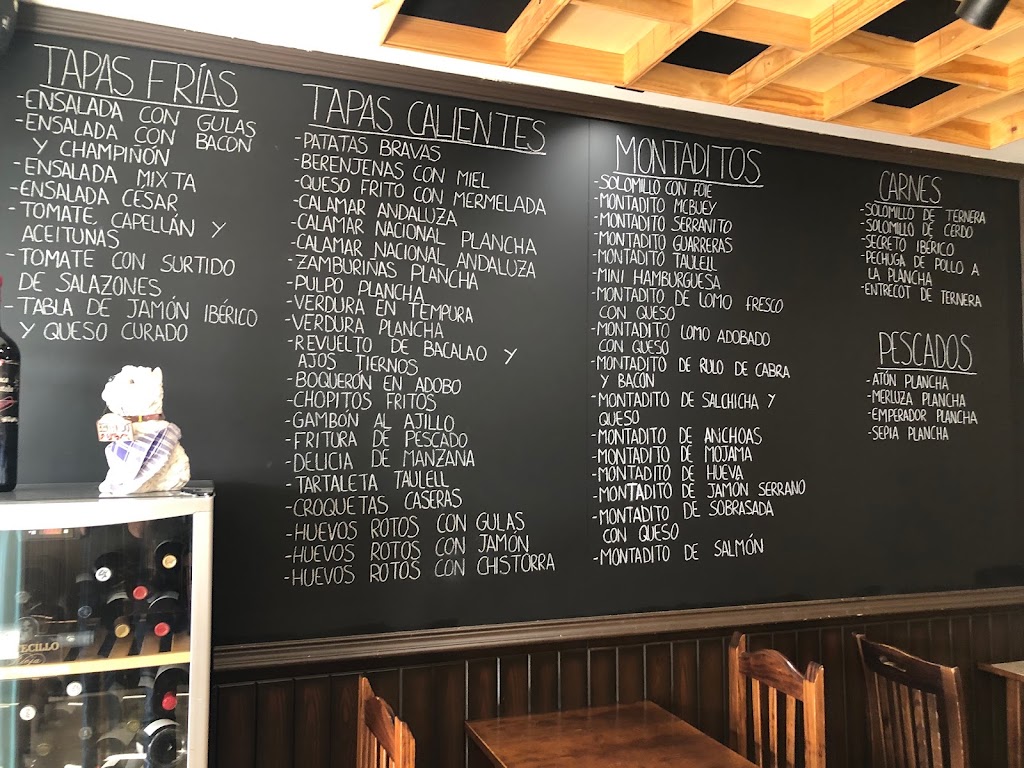 TAPAS FRÍAS
-ENSALADA CON GULAS
-ENSALADA CON BACON
Y CHAMPIÑÓN
-ENSALADA MIXTA
-ENSALADA CÉSAR
-TOMATE, CAPELLÁN Y
ACEITUNAS
-TOMATE CON SURTIDO
DE SALAZONES
-TABLA DE JAMÓN IBÉRICO
Y QUESO CURADO
TAPAS CALIENTES
-PATATAS BRAVAS
-BERENJENAS CON MIEL
-QUESO FRITO CON MERMELADA
-CALAMAR ANDALUZA
-CALAMAR NACIONAL PLANCHA
-CALAMAR NACIONAL ANDALUZA
-ZAMBURIÑAS PLANCHA
-PULPO PLANCHA
-VERDURA EN TEMPURA
-VERDURA PLANCHA
-REVUELTO DE BACALAO Y
AJOS TIERNOS
-BOQUERÓN EN ADOBO
-CHOPITOS FRITOS
-GAMBÓN AL AJILLO
-FRITURA DE PESCADO
-DELICIA DE MANZANA
-TARTALETA TAULELL
-CROQUETAS CASERAS
-HUEVOS ROTOS CON GULAS
-HUEVOS ROTOS CON JAMÓN
-HUEVOS ROTOS CON CHISTORRA
MONTADITOS
-SOLOMILLO CON FOIE
-MONTADITO MCBUEY
-MONTADITO SERRANITO
-MONTADITO GUARRERAS
-MONTADITO TAULELL
-MINI HAMBURGUESA
-MONTADITO DE LOMO FRESCO
CON QUESO
-MONTADITO LOMO ADOBADO
CON QUESO
-MONTADITO DE RULO DE CABRA
Y BACON
-MONTADITO DE SALCHICHA Y
QUESO
-MONTADITO DE ANCHOAS
-MONTADITO DE MOJAMA
-MONTADITO DE HUEVA
-MONTADITO DE JAMÓN SERRANO
-MONTADITO DE SOBRASADA
CON QUESO
-MONTADITO DE SALMÓN
CARNES
-SOLOMILLO DE TERNERA
-SOLOMILLO DE CERDO
-SECRETO IBÉRICO
-PECHUGA DE POLLO A
LA PLANCHA
-ENTRECOT DE TERNERA
PESCADOS
-ATÚN PLANCHA
-MERLUZA PLANCHA
-EMPERADOR PLANCHA
-SEPIA PLANCHA